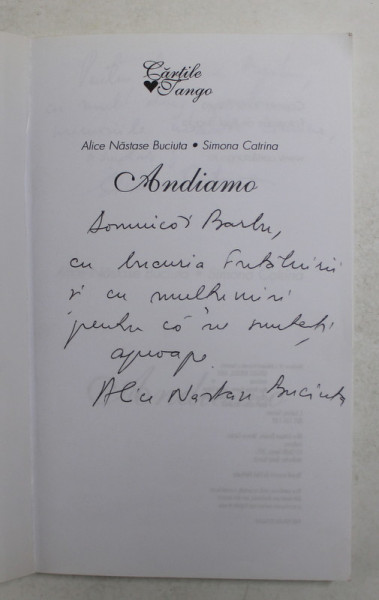 Cărțile
Tango
Alice Năstase Buciuta • Simona Catrina
Andiamo
Barbu,
cu bucuria întâlnirii
și cu mulțumiri
pentru că ne sunteți
aproape.
Alice Năstase Buciuta